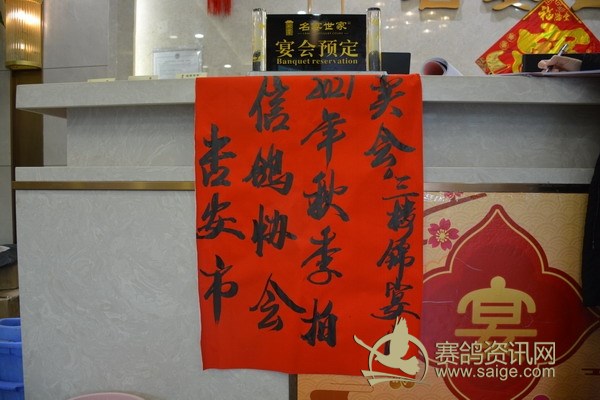 宴会预定
Banquet reservation
福
吉安市
信鸽协会
2021年秋季拍
卖会三楼锦宴
宴
赛鸽资讯网
www.saige.com